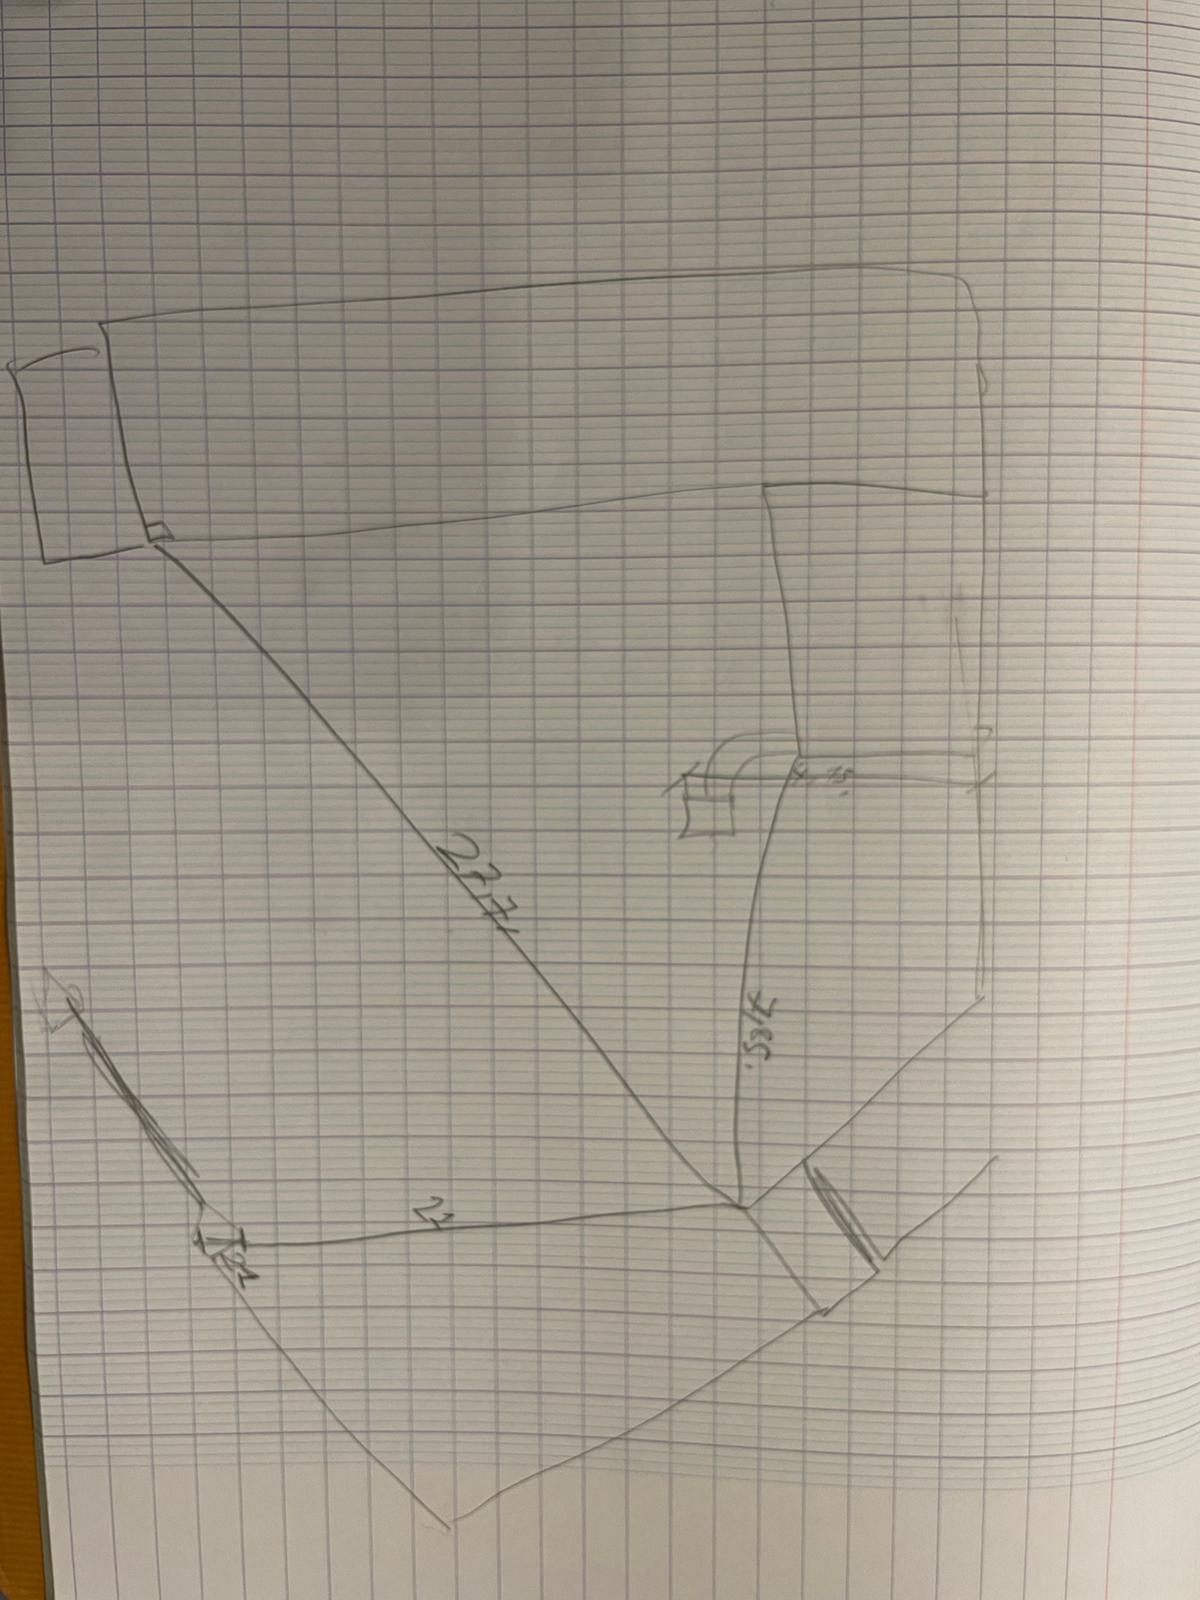 7,85.
27,7
21
21